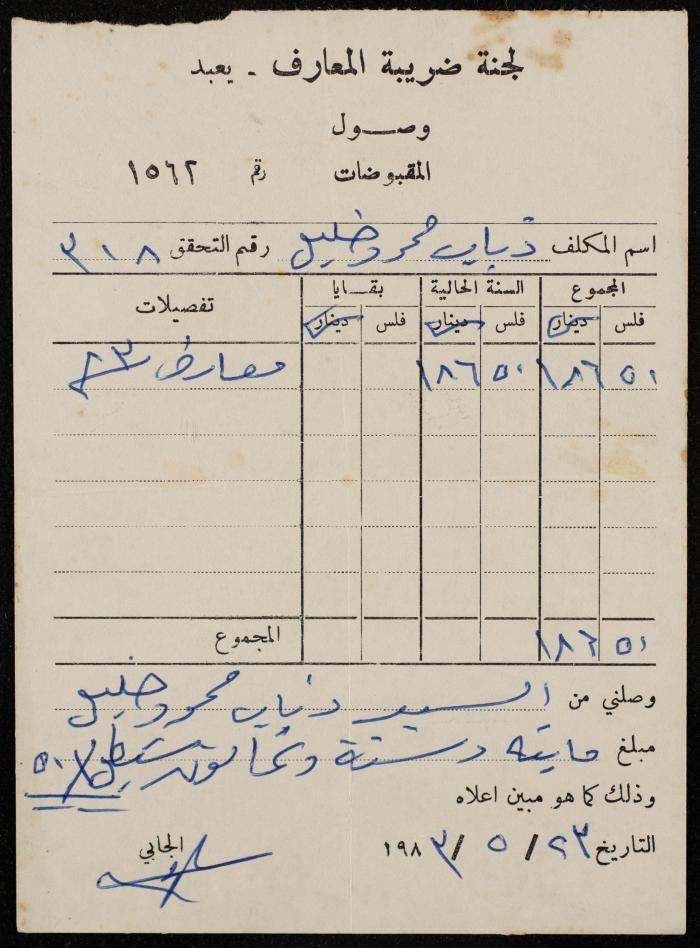 لجنة ضريبة المعارف - يعبد
وصول
المقبوضات رقم ١٥٦٢
اسم المكلف ذياب محمود خليل رقم التحقق ٣١٨
المجموع السنة الحالية بقايا تفصيلات
فلس دينار فلس دينار فلس دينار
٥٠ ١٨٦ ٥٠ ١٨٦ معارف ٨٣
المجموع
٥٠ ١٨٦
وصلني من السيد ذياب محمود خليل
مبلغ ماية وستة وثمانون شيكل ٥٠
وذلك كما هو مبين اعلاه
التاريخ ٢٣ / ٥ / ١٩٨٣
الجابي